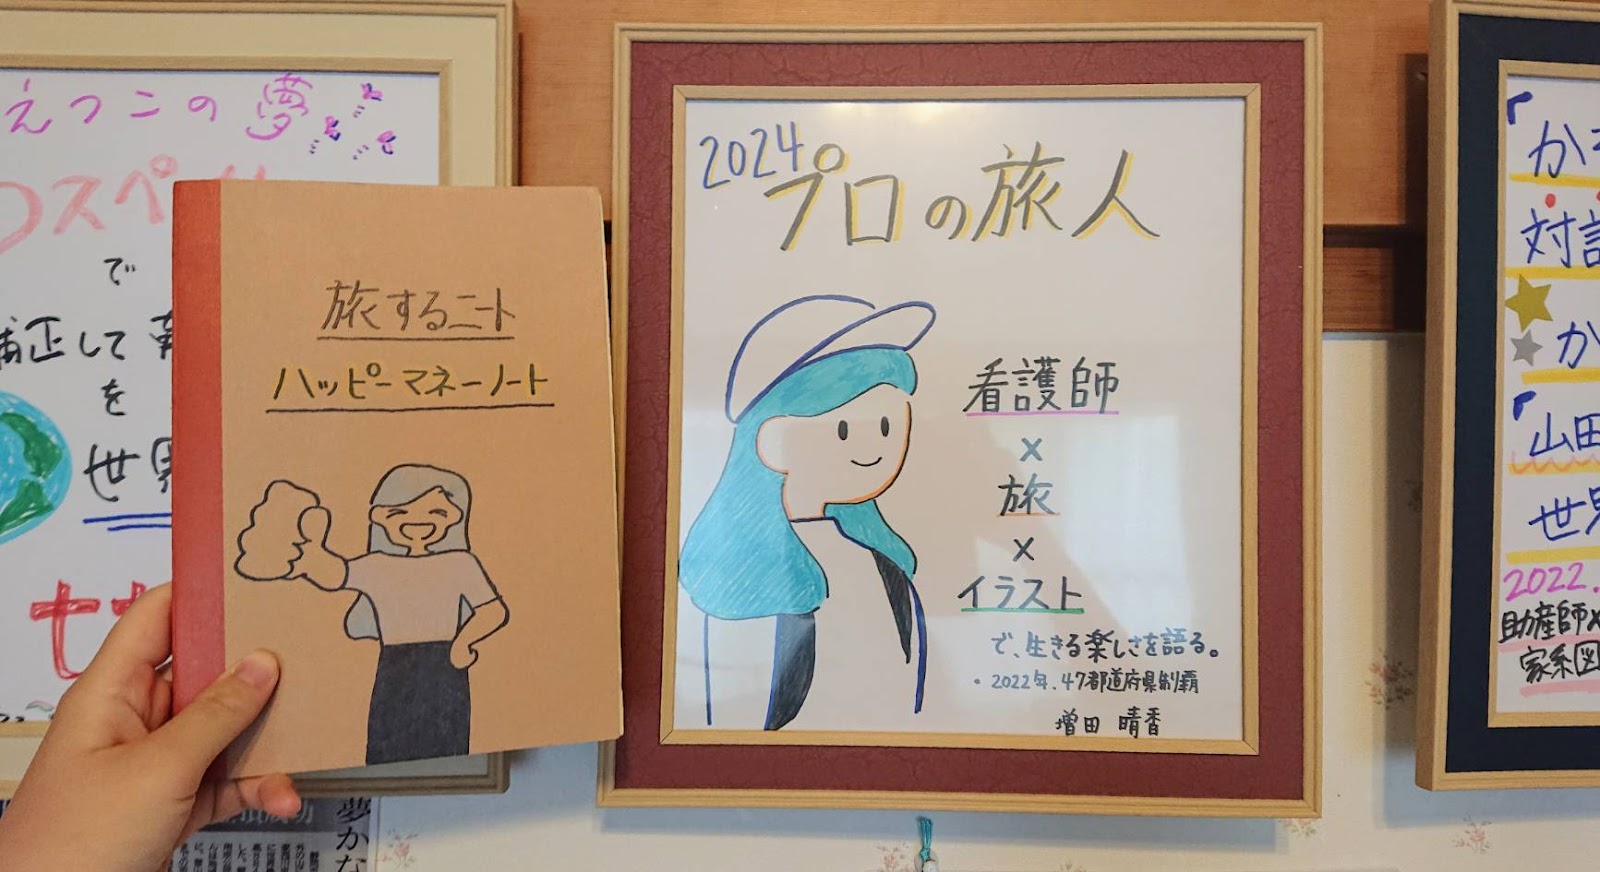 えつこの夢
スペ
で
補正して
を
世界
旅するニート
ハッピーマネーノート
2024
プロの旅人
看護師
×
旅
×
イラスト
で、生きる楽しさを語る。
・2022年.47都道府県制覇
増田 晴香
「か
対話
か
「山田
世界
2022.
助産師×
家系図
夢かな